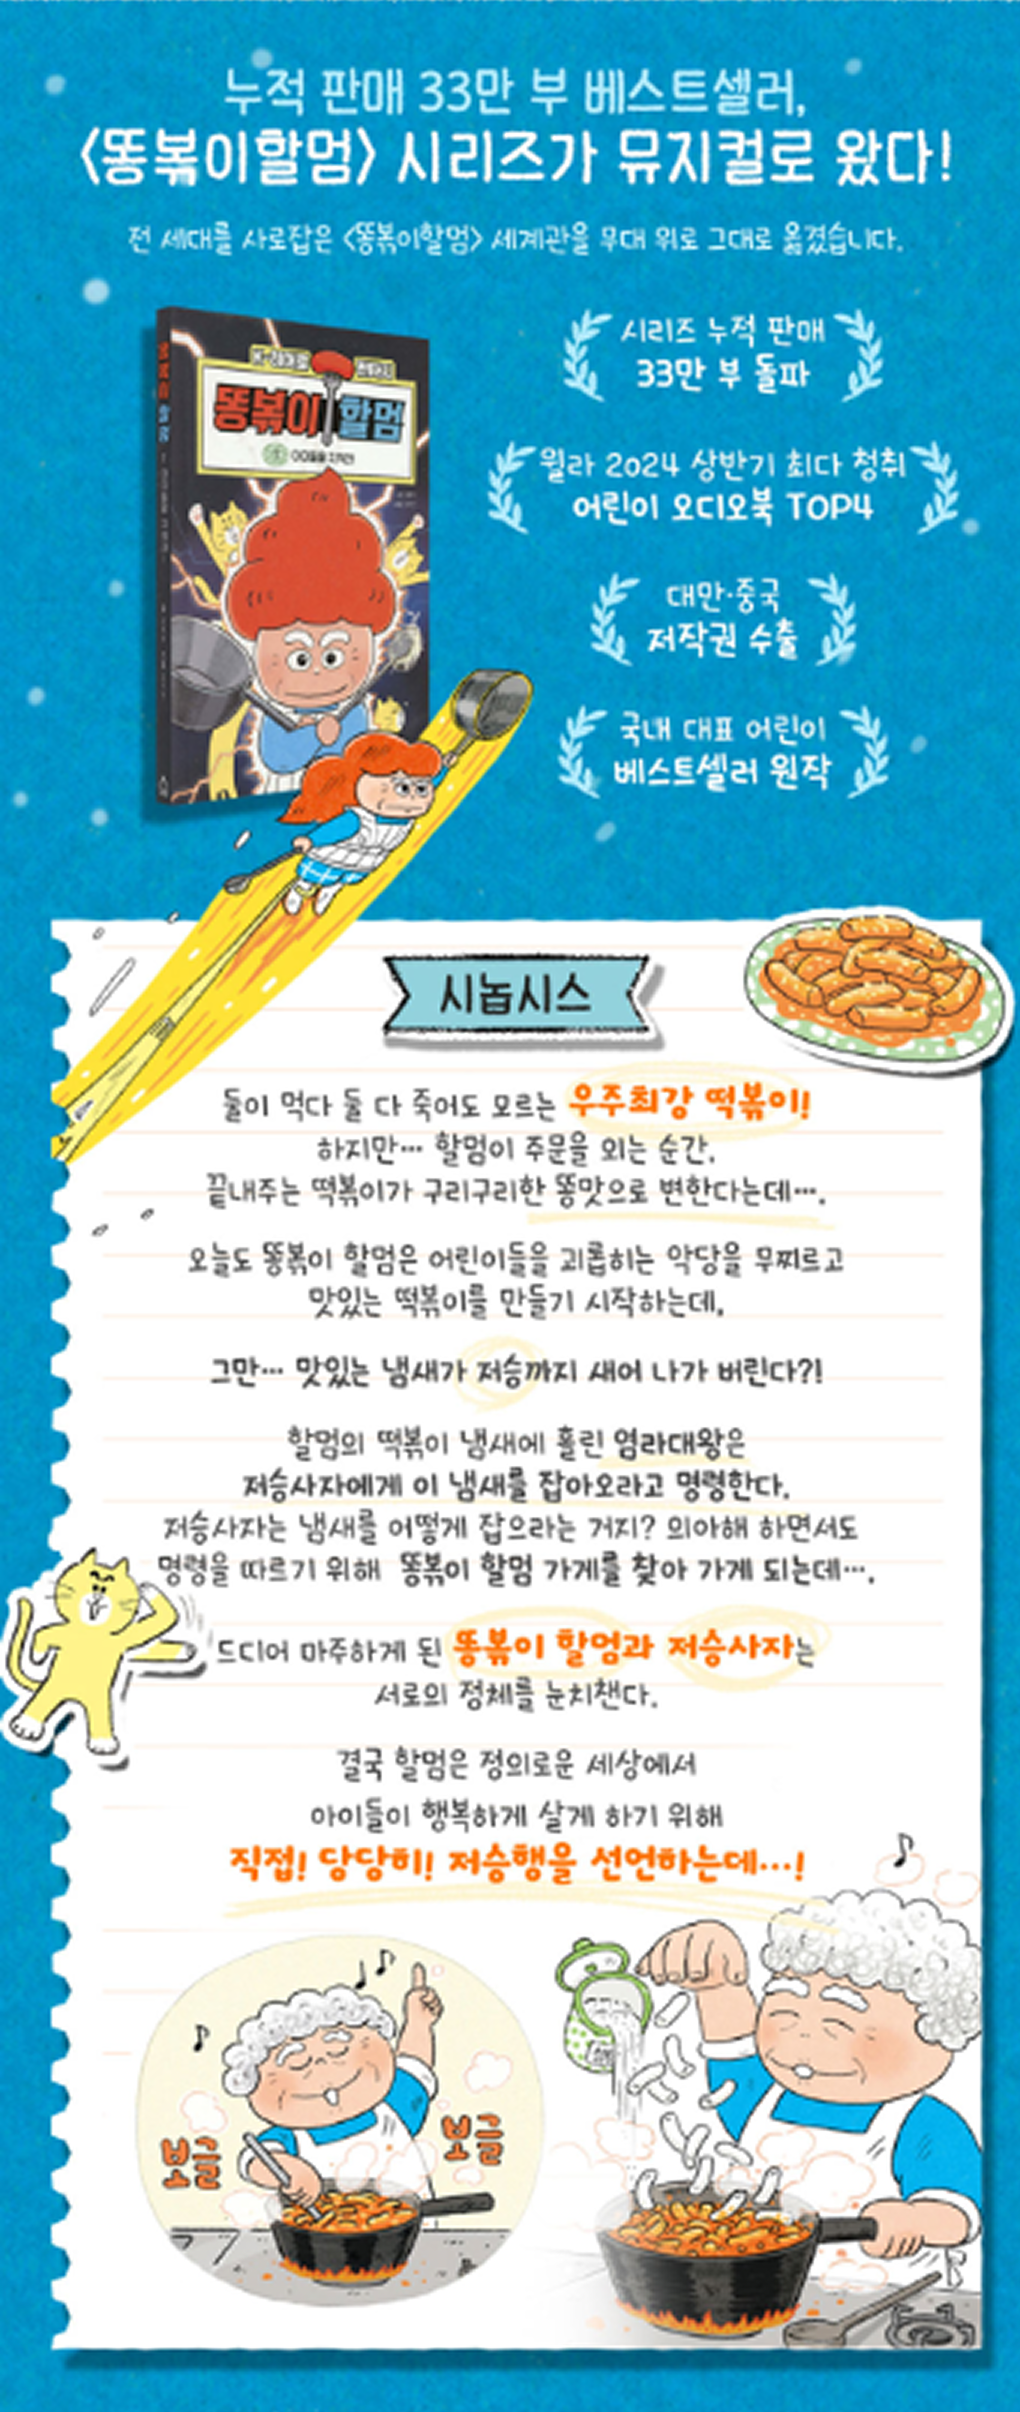 누적 판매 33만 부 베스트셀러,
<똥볶이할멈> 시리즈가 뮤지컬로 왔다!
전 세대를 사로잡은 <똥볶이할멈> 세계관을 무대 위로 그대로 옮겼습니다.
똥볶이 할멈
시리즈 누적 판매
33만 부 돌파
윌라 2024 상반기 최다 청취
어린이 오디오북 TOP4
대만·중국
저작권 수출
국내 대표 어린이
베스트셀러 원작
시놉시스
둘이 먹다 둘 다 죽어도 모르는 우주최강 떡볶이!
하지만… 할멈이 주문을 외는 순간,
끝내주는 떡볶이가 구리구리한 똥맛으로 변한다는데….
오늘도 똥볶이 할멈은 어린이들을 괴롭히는 악당을 무찌르고
맛있는 떡볶이를 만들기 시작하는데,
그만… 맛있는 냄새가 저승까지 새어 나가 버린다?!
할멈의 떡볶이 냄새에 홀린 염라대왕은
저승사자에게 이 냄새를 잡아오라고 명령한다.
저승사자는 냄새를 어떻게 잡으라는 거지? 의아해 하면서도
명령을 따르기 위해 똥볶이 할멈 가게를 찾아 가게 되는데….
드디어 마주하게 된 똥볶이 할멈과 저승사자는
서로의 정체를 눈치챈다.
결국 할멈은 정의로운 세상에서
아이들이 행복하게 살게 하기 위해
직접! 당당히! 저승행을 선언하는데…!
보글
보글